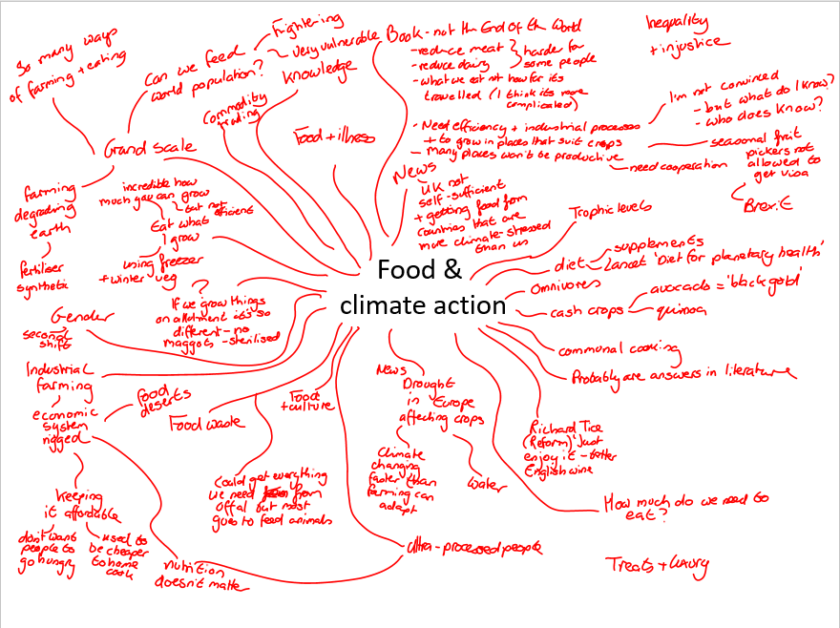 So many ways
of farming + eating
Can we feed
world population?
frightening
very vulnerable
Knowledge
Commodity
trading
Food + illness
Grand scale
farming
degrading
earth
fertiliser
synthetic
incredible how
much you can grow
but not
efficient
Eat what
I grow
using freezer
+ winter veg
?
If we grow things
on allotment it's so
different - no
maggots - sterilised
Gender
second
shift
Industrial
farming
economic
system
rigged
food
deserts
keeping
it affordable
don't want
people to
go hungry
used to
be cheaper
to home
cook
nutrition
doesn't matter
Food waste
Could get everything
we need from
offal but most
goes to feed animals
Food
+ culture
Food &
climate action
Book - not the End of the World
- reduce meat
- reduce dairy
harder for
some people
- what we eat not how far it's
travelled (I think it's more
complicated)
- Need efficiency + industrial processes
+ to grow in places that suit crops
- many places won't be productive
I'm not convinced
- but what do I know?
- who does know?
need cooperation
seasonal fruit
pickers not
allowed to
get visa
Brexit
Inequality
+ injustice
News
UK not
self-sufficient
+ getting food from
countries that are
more climate-stressed
than us
Trophic levels
diet
supplements
Lancet 'Diet for planetary health'
Omnivores
cash crops
avocado = 'black gold'
quinoa
communal cooking
Probably are answers in literature
News
Drought
in Europe
affecting crops
Climate
changing
faster than
farming can
adapt
water
Richard Tice
(Reform) 'Just
enjoy it - better
English wine
How much do we need to
eat?
Ultra-processed people
Treats + luxury